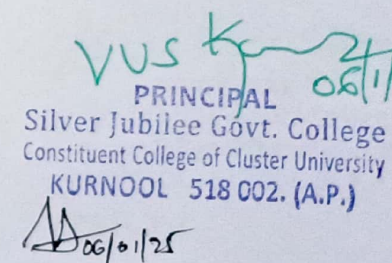 VUS
06/1
PRINCIPAL
Silver Jubilee Govt. College
Constituent College of Cluster University
KURNOOL 518 002. (A.P.)
06/01/25